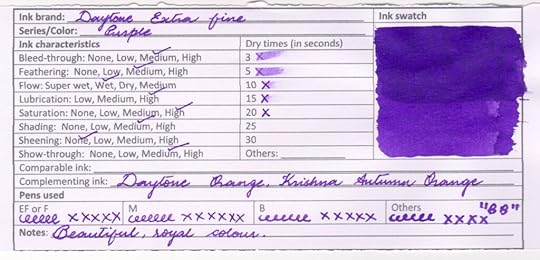 Ink brand: Daytone Extra fine Ink swatch
Series/Color: Purple
Ink characteristics Dry times (in seconds)
Bleed-through: None, Low, Medium, High 3 x
Feathering: None, Low, Medium, High 5 x
Flow: Super wet, Wet, Dry, Medium 10 x
Lubrication: Low, Medium, High 15 x
Saturation: None, Low, Medium, High 20 x
Shading: None, Low, Medium, High 25
Sheening: None, Low, Medium, High 30
Show-through: None, Low, Medium, High Others:
Comparable ink:
Complementing ink: Daytone Orange, Krishna Autumn Orange
Pens used
EF or F M B Others "BB"
xxxxx xxxxxx xxxxx xxxx
Notes: Beautiful, royal colour.